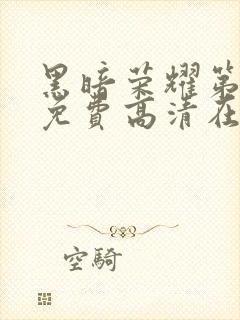 黑暗荣耀第
免费高清在
空騎